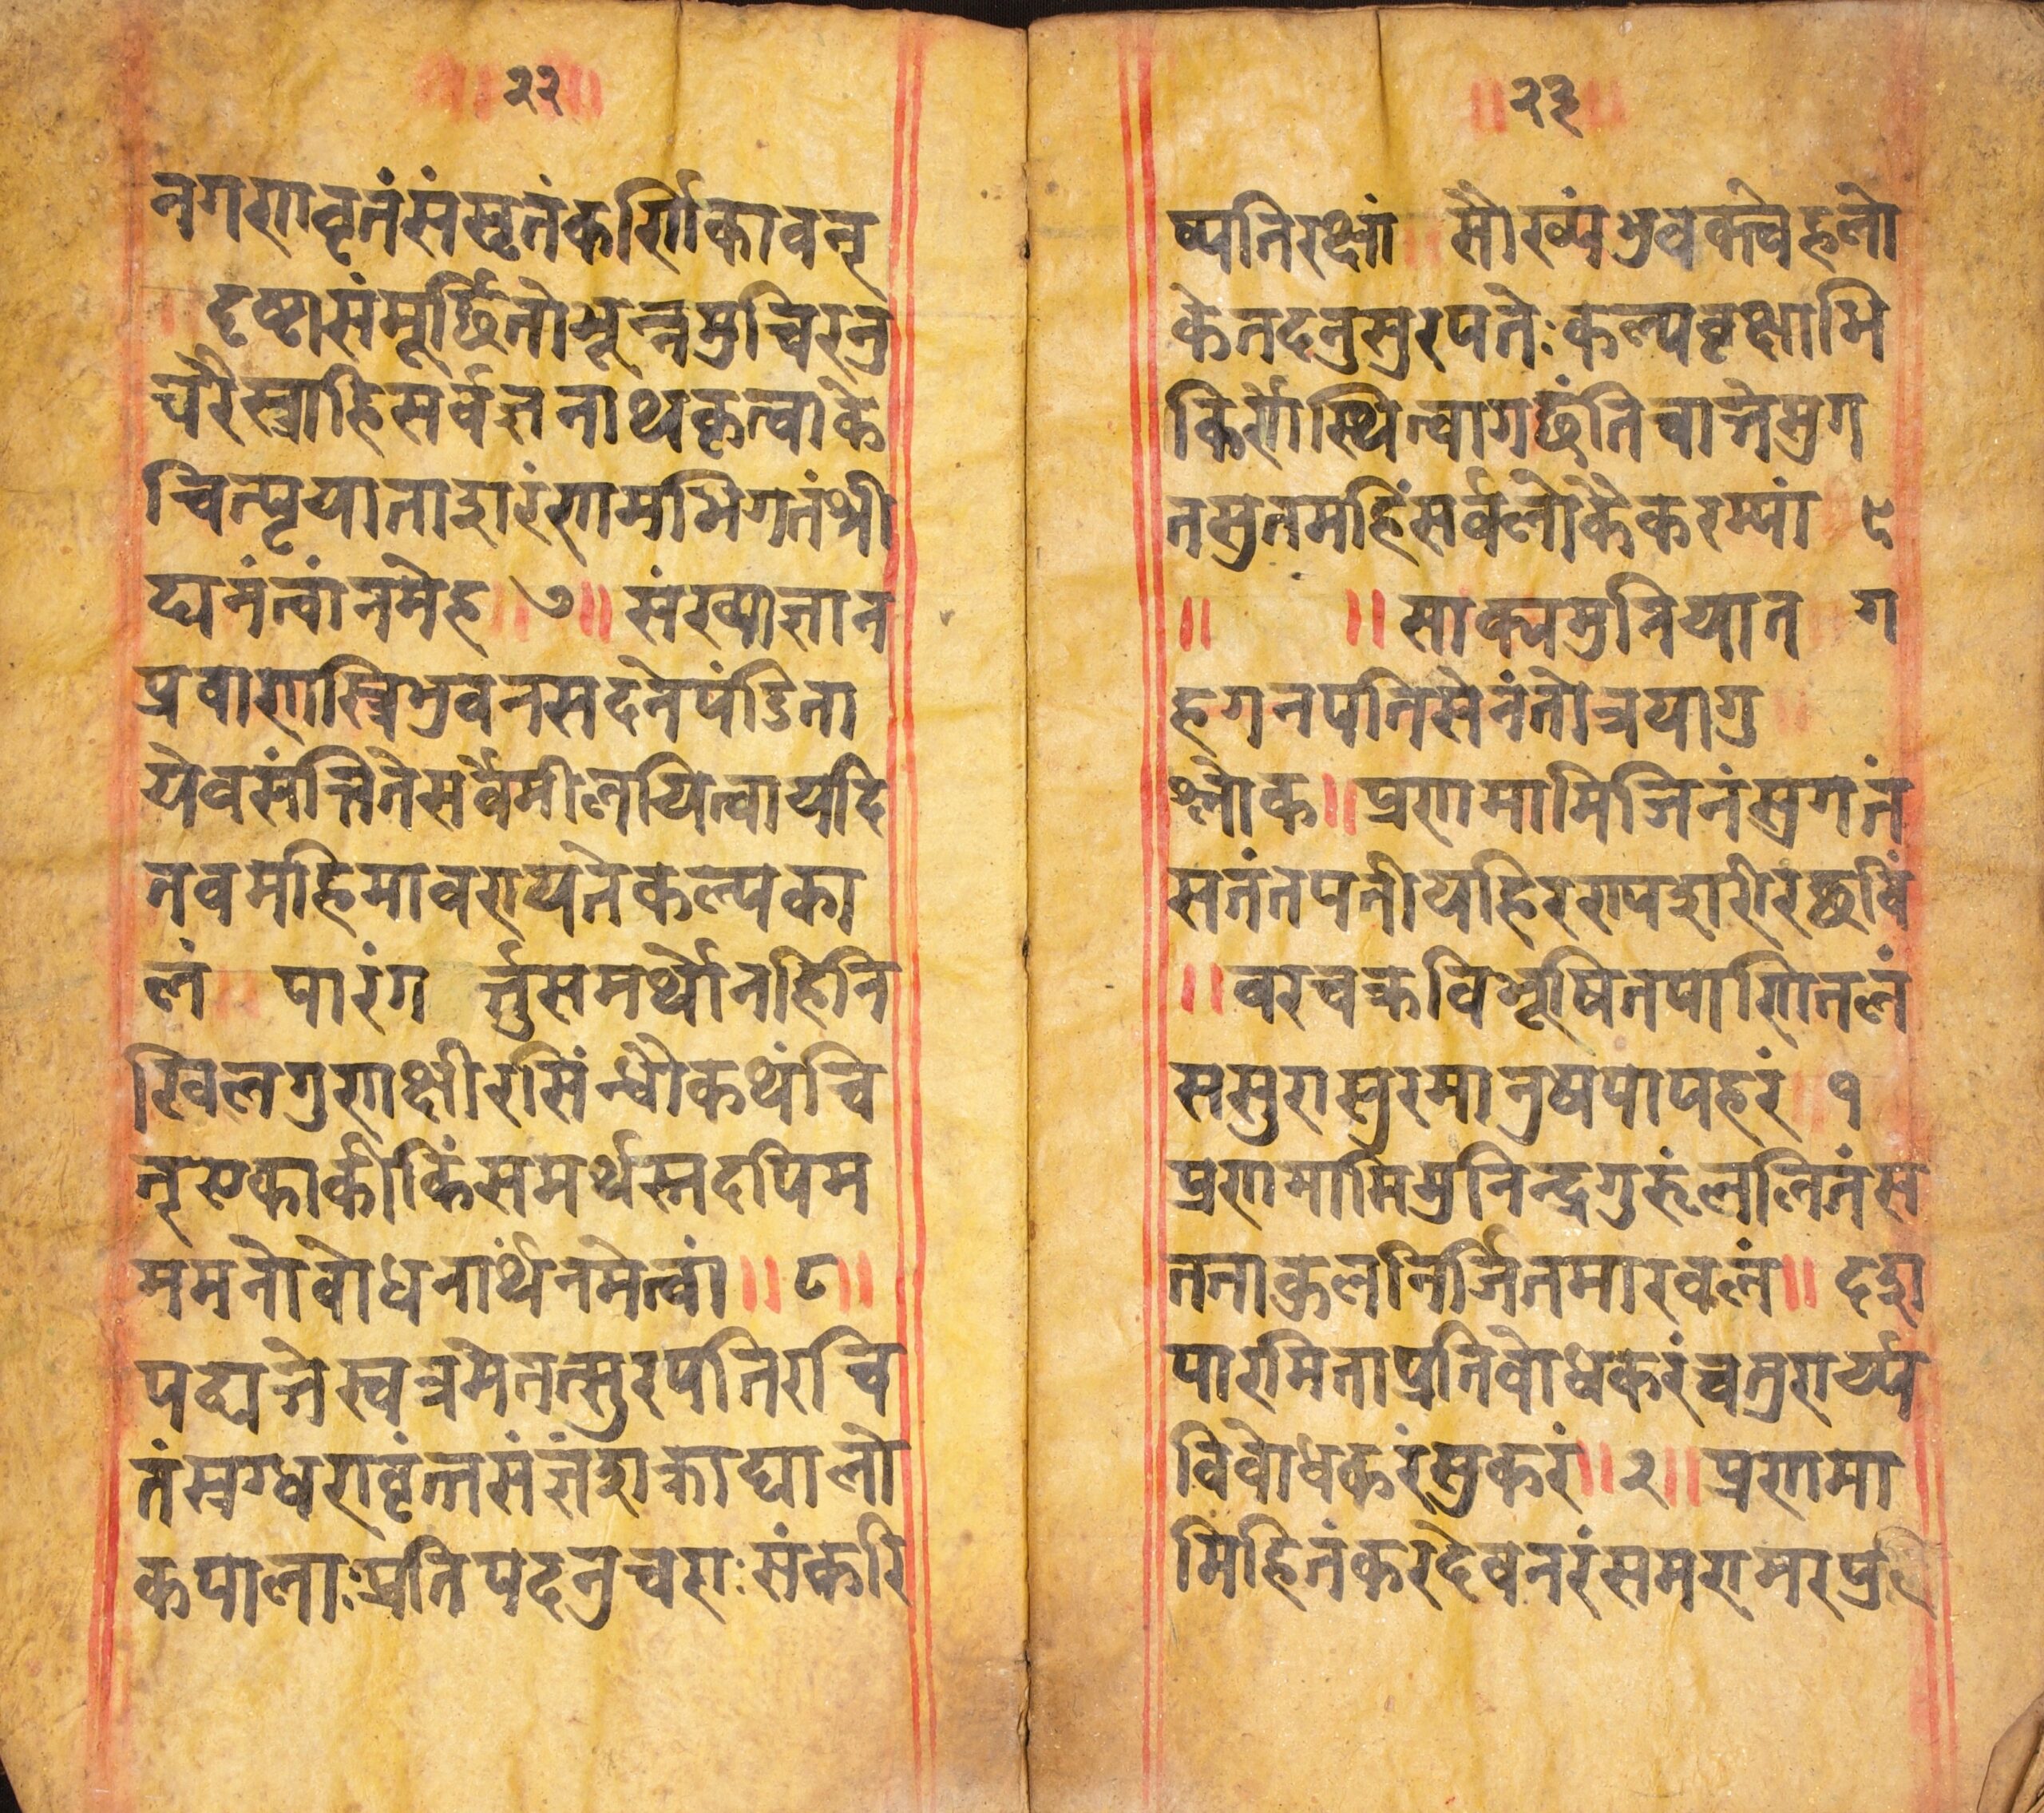 २२
नगणावृतंसंस्तुतंकर्णिकावत्तृ
दृष्ट्वासंमूर्छितोभून्नमुचिरनु
चरैस्त्राहिसर्वज्ञनाथकृत्वाके
चित्पृयाताद्वारंणमभिगतंश्री
द्यनंत्वांनमेह ७॥ संख्याज्ञान
प्रवाणास्त्रिभुवनसदनेपंडिता
येवसंत्तितेसर्वेमीलयित्वायदि
तवमहिमावरण्यतेकल्पका
लं पारंग र्त्तुसमर्थोनहिनि
खिलगुणक्षीरसिंन्धौकथंचि
त्तृएकाकीकिंसमर्थस्तदपिम
ममनोवोधनार्थनमेत्वां॥ ८॥
पद्यान्तेस्वत्त्रमेतत्सुरपतिरचि
तंस्रग्धरावृंत्तसंज्ञंशक्राद्यालो
कपालाःप्रतिपदनुचराःसंकरि
२३
ष्यतिरक्षां सौख्यंभुवक्त्वेहलो
केतदनुसुरपतेःकल्पवृक्षाभि
किर्णेस्थित्वागछंतिचान्तेसुग
तसुतमहिंसर्वलोकैकरम्यां ९
॥ ॥साक्यमुनियात ग
हगनपतिसेनंतोत्रयागु
श्लोक॥प्रणमामिजिनंसुगतं
सततंतपनीयहिरण्यशरीरंछविं
॥वरचक्रविभूषितपाणितलं
ससुरासुरमानुष्यपापहरं १
प्रणमामिमुनिन्द्रगुरुंललितंस
तताकुलनिर्जितमारवलं॥ दश
पारमिताप्रतिवोधकरंचतुरार्य्य
विवोधकरंसुकरं॥२॥प्रणमा
मिहितंकरदेवनरंसमरामरप्र